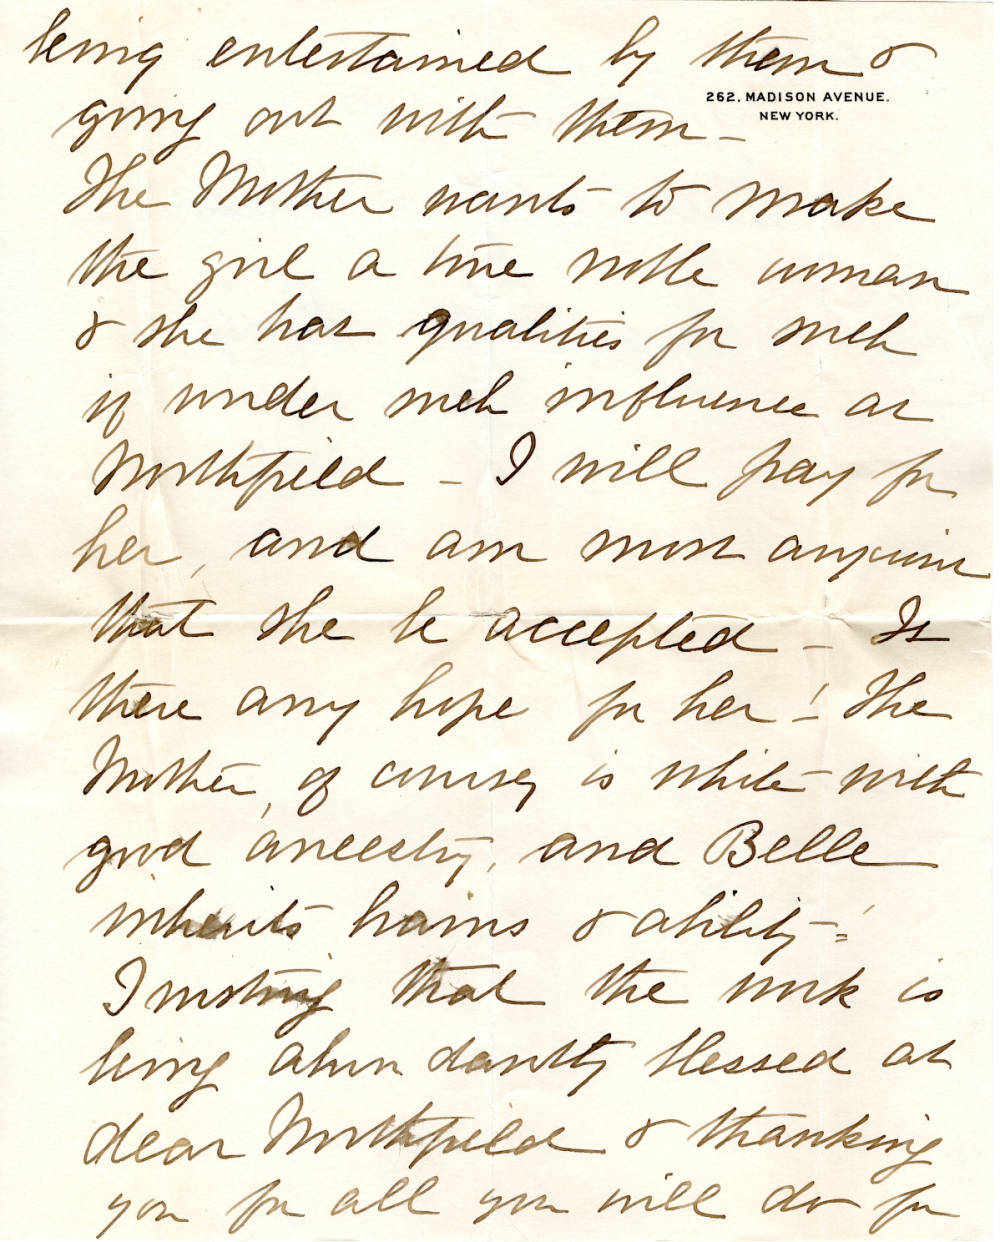 being entertained by them &
262, MADISON AVENUE.
NEW YORK.
going out with them -
The Mother wants to make
the girl a true noble woman
& she has qualities for such
if under such influence as
Northfield - I will pay for
her, and am most anxious
that she be accepted - Is
there any hope for her! The
Mother, of course, is white with
good ancestry, and Belle
inherits brains & ability -
Trusting that the work is
being abundantly blessed at
dear Northfield & thanking
you for all you will do for